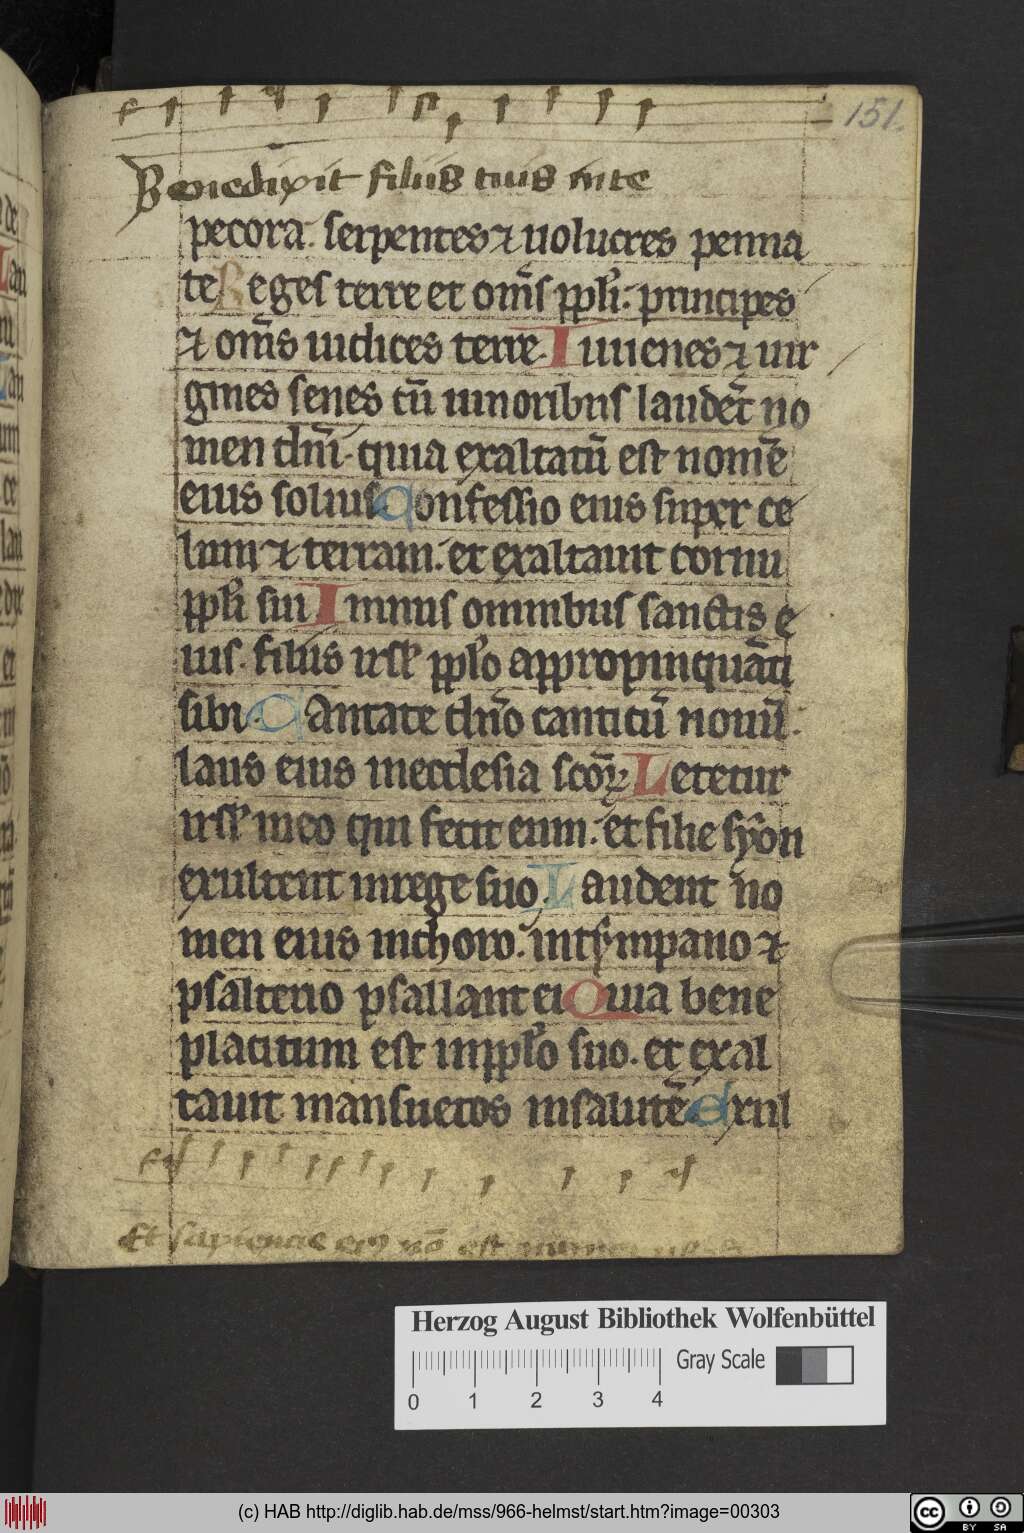 151.
Benedixit filiis tuis in te
pecora. serpentes ⁊ uolucres penna
te Reges terre et om̄s ppl̄i. principes
⁊ om̄s iudices terre. Iuuenes ⁊ uir
gines senes cū iunioribus laudēt no
men dn̄i. quia exaltatū est nomē
eius solius Confessio eius super ce
lum ⁊ terram. et exaltauit cornu
ppl̄i sui Imnus omnibus sanctis e
ius. filiis isrl̄ ppl̄o appropinquāti
sibi. Cantate dn̄o canticū nouū.
laus eius in ecclesia scōꝝ Letetur
isrl̄ in eo qui fecit eum. et filie syon
exultent in rege suo. Laudent no
men eius in choro. in tympano ⁊
psalterio psallant ei Quia bene
placitum est in ppl̄o suo. et exal
tauit mansuetos in salutē Exul
Et sapiencie eiꝰ nō est
Herzog August Bibliothek Wolfenbüttel
Gray Scale
0 1 2 3 4
(c) HAB http://diglib.hab.de/mss/966-helmst/start.htm?image=00303
CC BY SA